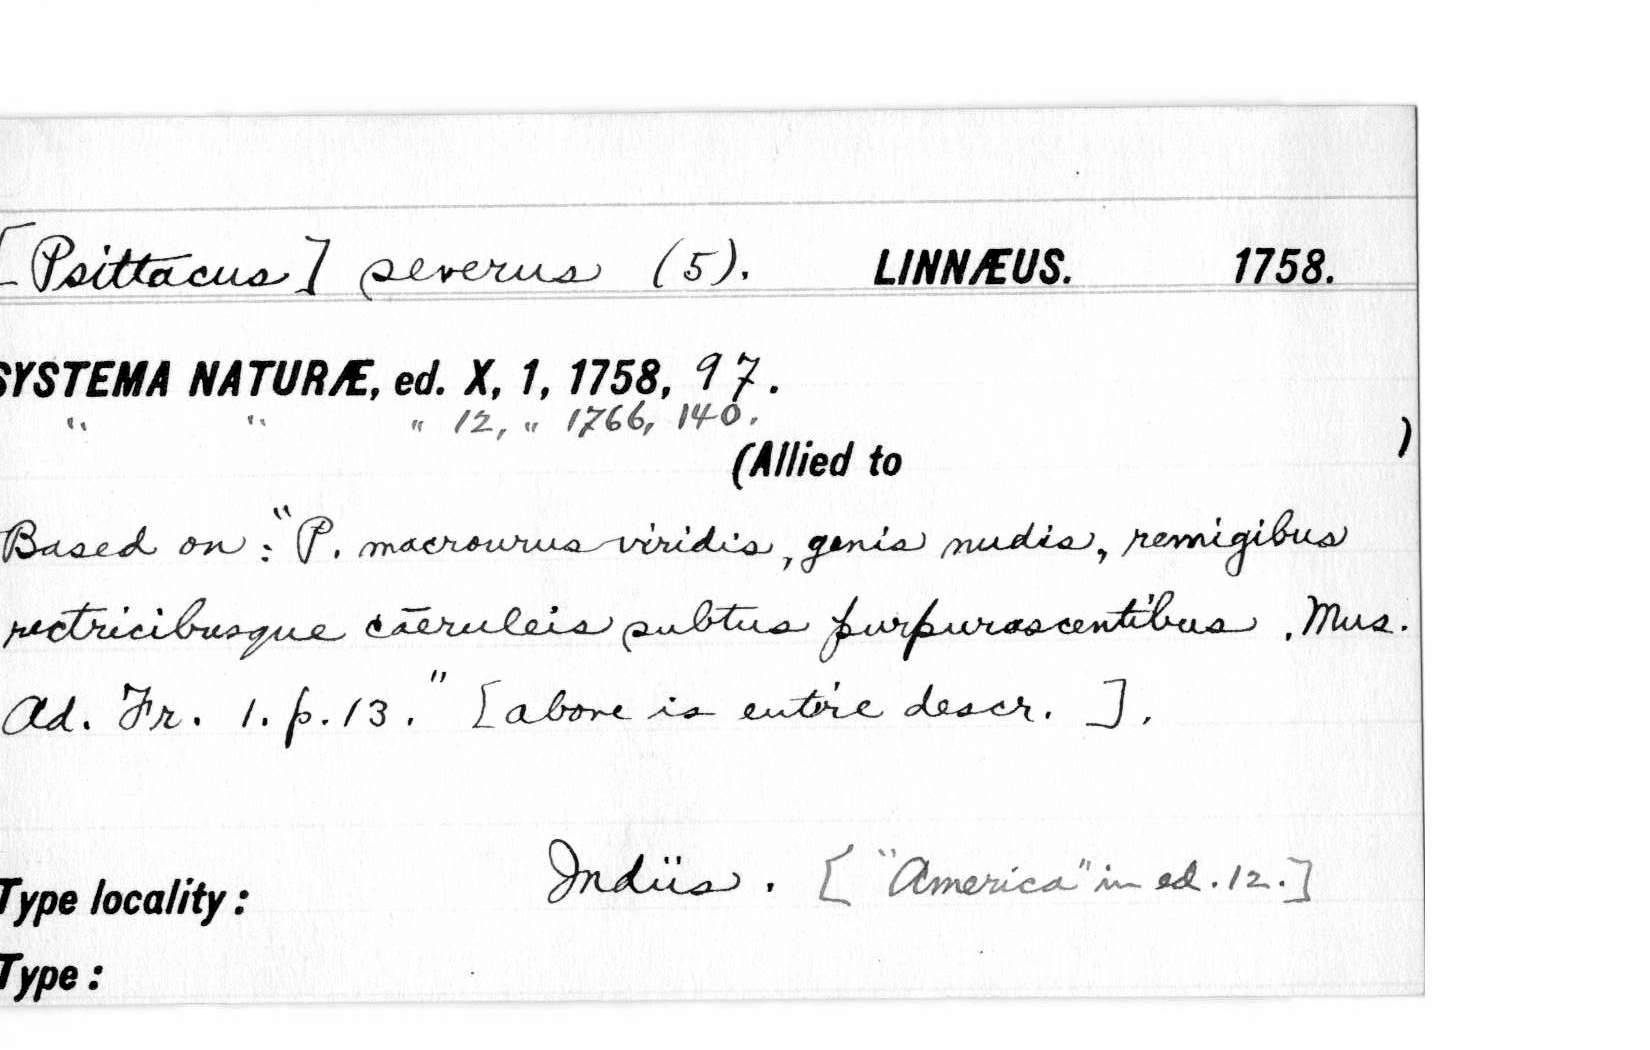 [Psittacus] severus (5). LINNÆUS. 1758.
SYSTEMA NATURÆ, ed. X, 1, 1758, 97.
" " " 12, " 1766, 140.
(Allied to )
Based on: "P. macrourus viridis, genis nudis, remigibus
rectricibusque cæruleis subtus purpurascentibus. Mus.
Ad. Fr. 1. p. 13." [above is entire descr. ].
Type locality: Indiis. ["America" in ed. 12.]
Type: